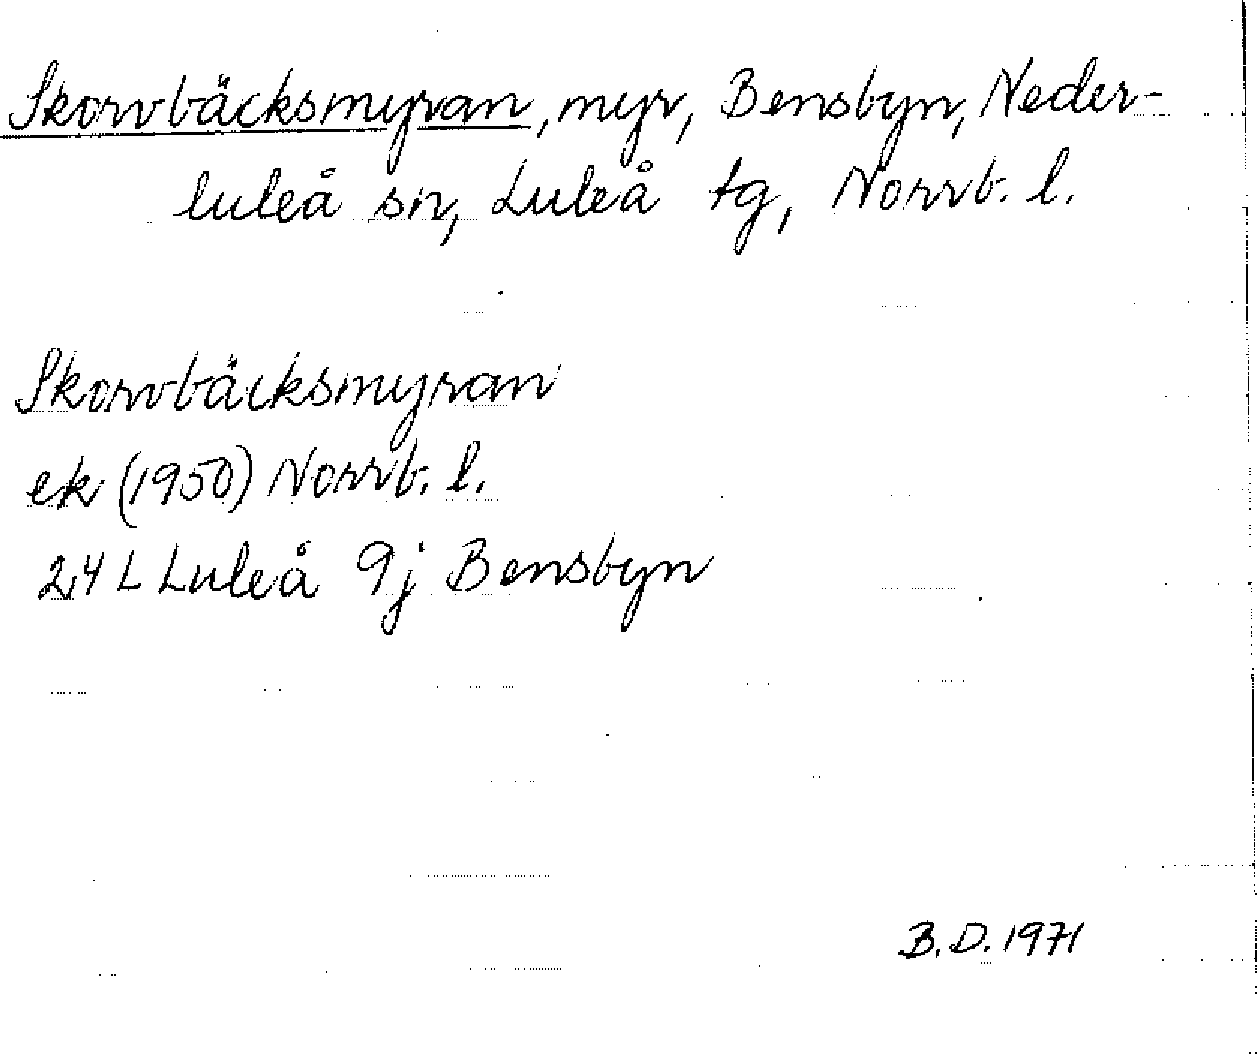 Skorvbäcksmyran, myr, Bensbyn, Neder-
luleå sn, Luleå tg, Norrb. l.
Skorvbäcksmyran
ek (1950) Norrb. l.
24 L Luleå 9j Bensbyn
B.D. 1971